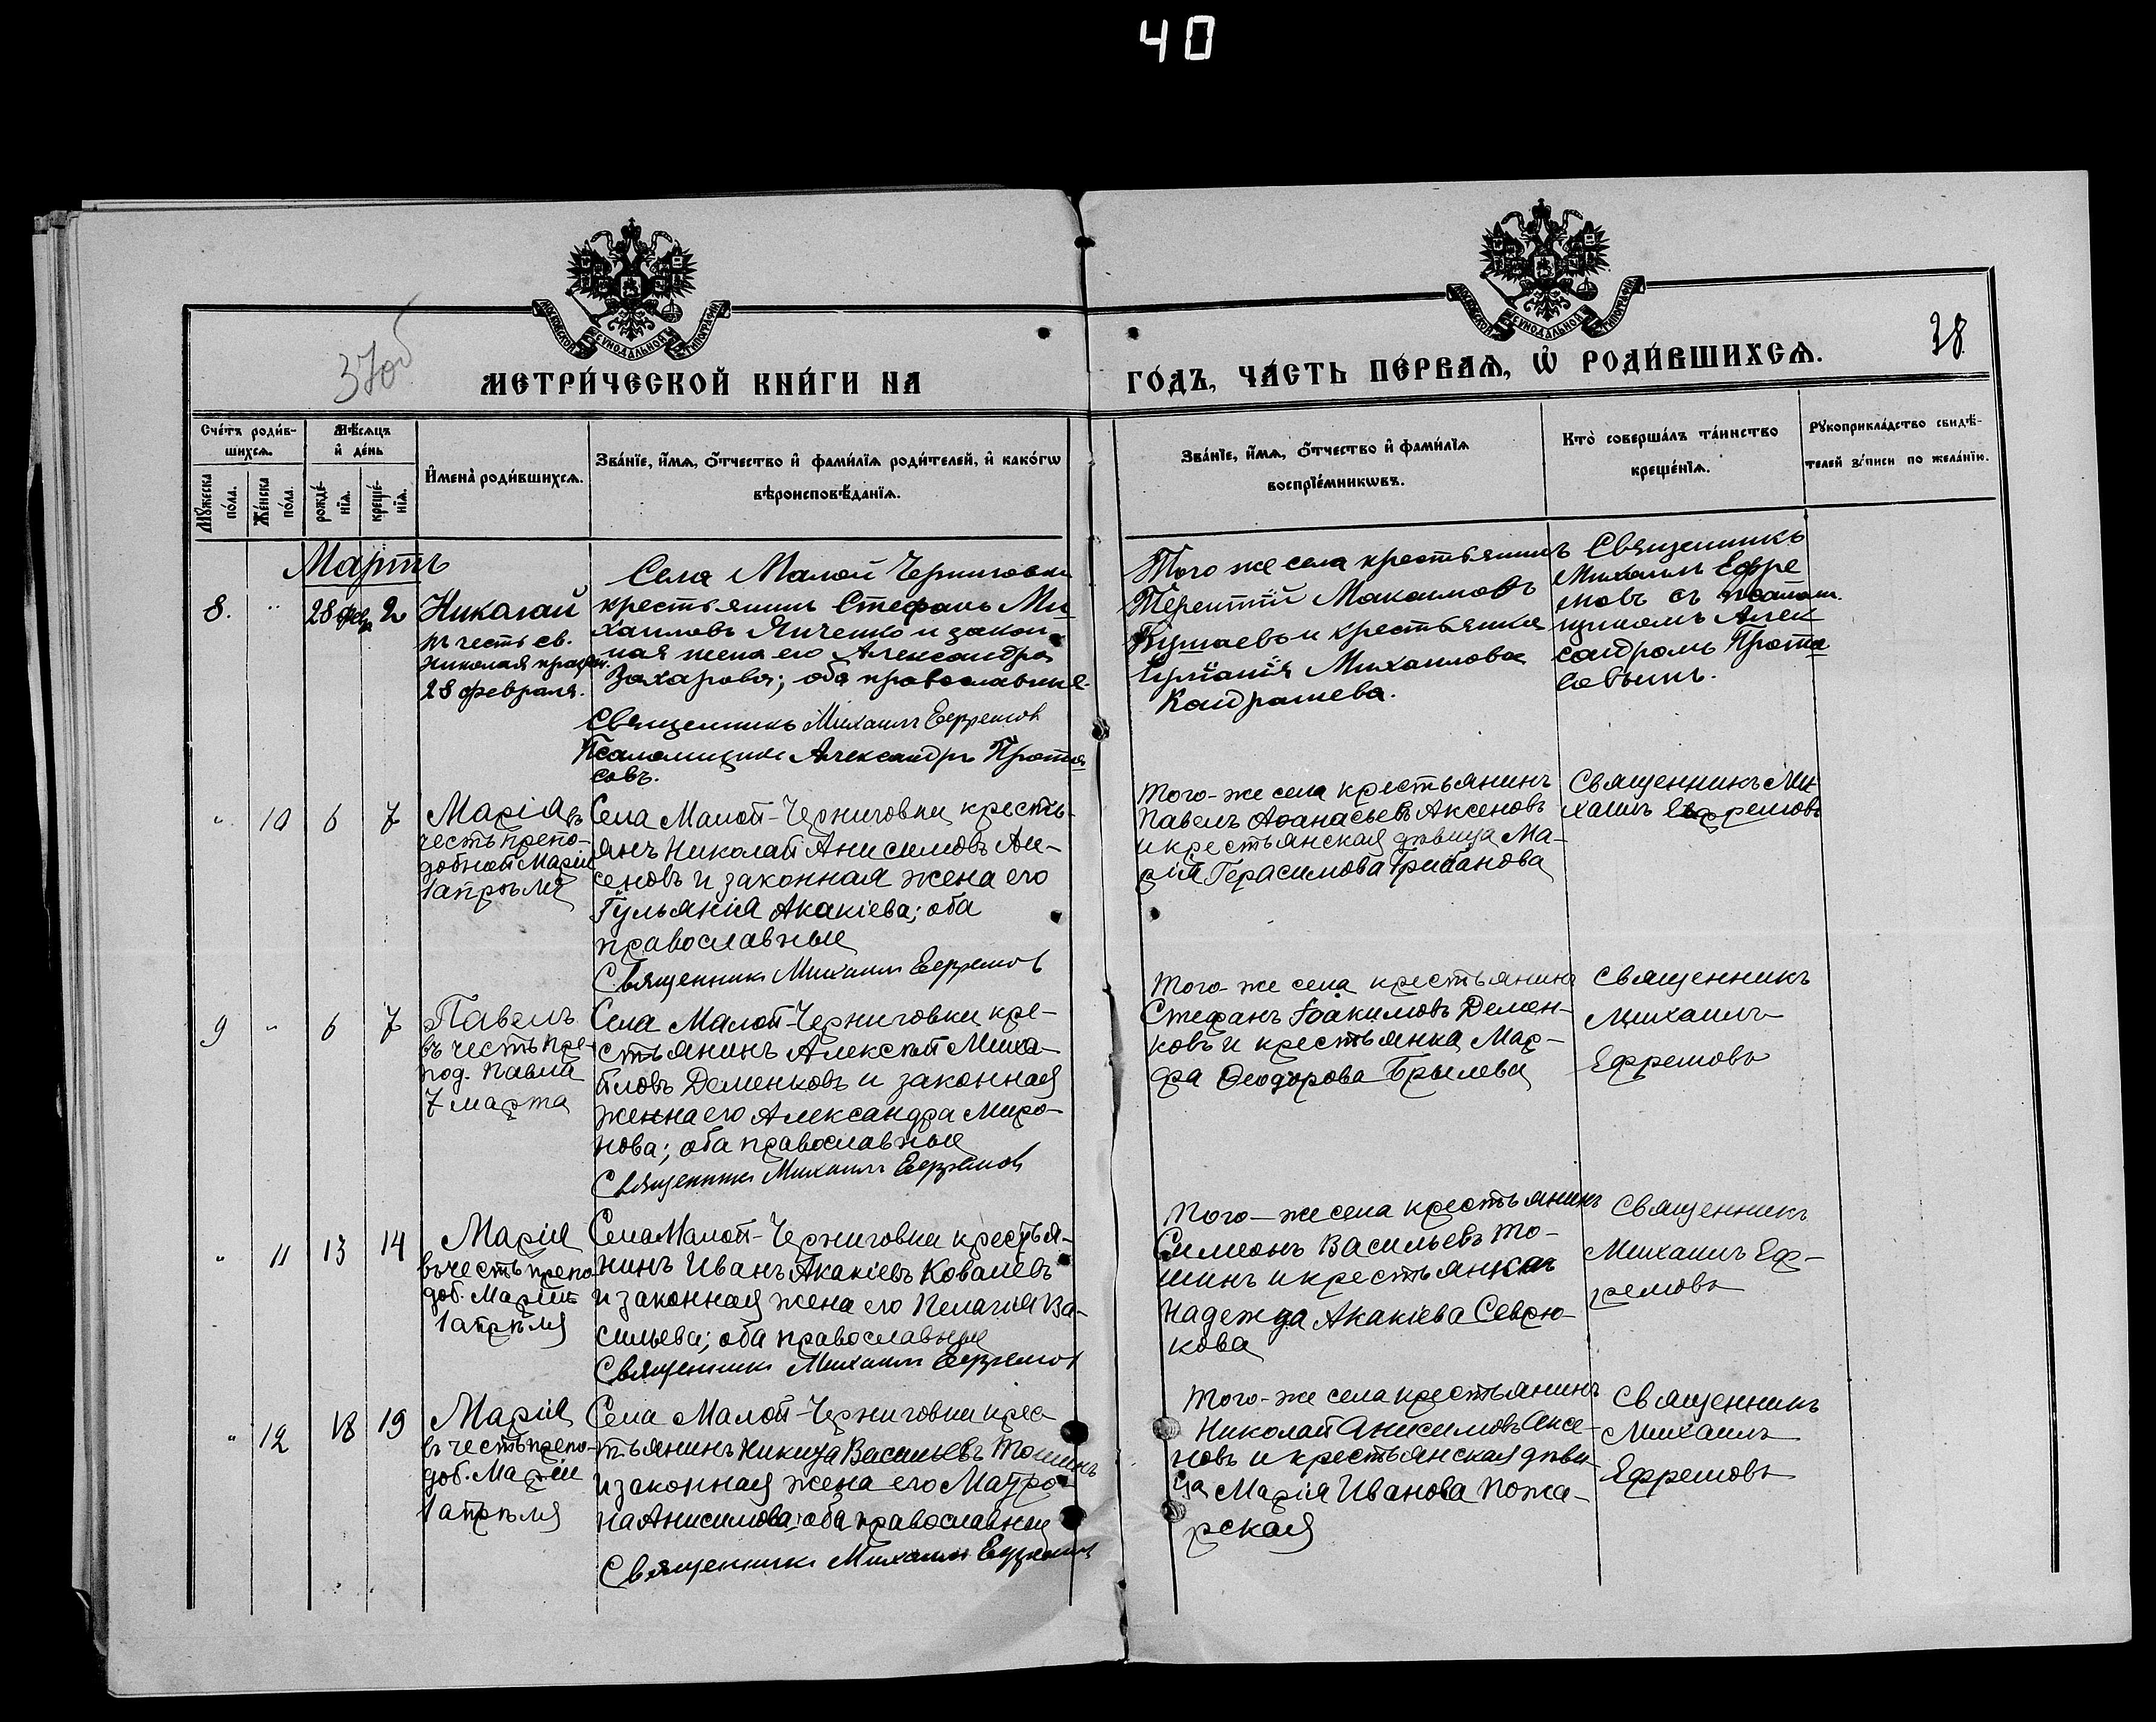 40
МОСКОВСКОЙ СѴНОДАЛЬНОЙ ТИПОГРАФІИ
МОСКОВСКОЙ СѴНОДАЛЬНОЙ ТИПОГРАФІИ
37об
28
МЕТРИ́ЧЕСКОЙ КНИ́ГИ НА
ГО́ДЪ, ЧА́СТЬ ПЕ́РВАѦ, Ѡ҆ РОДИ́ВШИХСѦ.
Сче́тъ роди́в-
шихсѧ.
Мѣ́сѧцъ
и҆ де́нь
Мꙋ́жеска
по́ла.
Же́нска
по́ла.
рожде́-
нїѧ.
креще́-
нїѧ.
И҆мена̀ роди́вшихсѧ.
Зва́нїе, и҆́мѧ, ѻ҆́тчество и҆ фами́лїѧ роди́телей, и҆ како́гѡ
вѣроисповѣ́данїѧ.
Зва́нїе, и҆́мѧ, ѻ҆́тчество и҆ фами́лїѧ
воспрїе́мникѡвъ.
Кто̀ соверша́лъ та́инство
креще́нїѧ.
Рꙋкоприкла́дство свидѣ́-
телей за́писи по жела́нїю.
Мартъ
8. " 28 фев. 2
Николай
въ честь св.
Николая
28 февраля.
Села Малой Черниговки
крестьянинъ Стефанъ Ми-
хаиловъ Янченко и закон
ная жена его Александра
Захарова; оба православные.
Священникъ Михаилъ Ефремовъ
Псаломщикъ Александръ Прота-
совъ.
Того же села крестьянинъ
Терентій Максимовъ
и крестьянка
Михаилова
Кандрашева.
Священникъ
Михаилъ Ефре
мовъ съ псалом.
щикомъ Алек
сандромъ Прота
совымъ.
" 10 6 7
Марія въ
честь препо-
добной Маріи
1 апрѣля
Села Малой-Черниговки кресть-
янъ Николай Анисимовъ Ак-
сеновъ и законная жена его
Гульянія Акакіева; оба
православные
Священникъ Михаилъ Ефремовъ
Того-же села крестьянинъ
Павелъ Аѳанасьевъ Аксеновъ
и крестьянская дѣвица Ма-
рія Герасимова Грибанова
Священникъ Ми-
хаилъ Ефремовъ
9 " 6 7
Павелъ
въ честь пре-
под. Павла
7 марта
Села Малой-Черниговки кре-
стьянинъ Алексѣй Миха-
йловъ Деменковъ и законная
жена его Александра Миро-
нова; оба православные
Священникъ Михаилъ Ефремовъ
Того-же села крестьянинъ
Стефанъ Іоакимовъ Демен-
ковъ и крестьянка Мар-
фа Ѳеодорова Брылева
Священникъ
Михаилъ
Ефремовъ
" 11 13 14
Марія
въ честь препо-
доб. Маріи
1 апрѣля
Села Малой-Черниговки крестья-
нинъ Иванъ Акакіевъ Ковалевъ
и законная жена его Пелагія Ва-
сильева; оба православные
Священникъ Михаилъ Ефремовъ
Того-же села крестьянинъ
Симеонъ Васильевъ То-
минъ и крестьянка
Надежда Акакіева Севрю-
кова
Священникъ
Михаилъ Еф-
ремовъ
" 12 18 19
Марія
въ честь препо-
доб. Маріи
1 апрѣля
Села Малой-Черниговки крес-
тьянинъ Никита Васильевъ Томинъ
и законная жена его Матро-
на Анисимова; оба православные
Священникъ Михаилъ Ефремовъ
Того-же села крестьянинъ
Николай Анисимовъ Аксе-
новъ и крестьянская дѣви-
ца Марія Иванова Пожа-
рская
Священникъ
Михаилъ
Ефремовъ